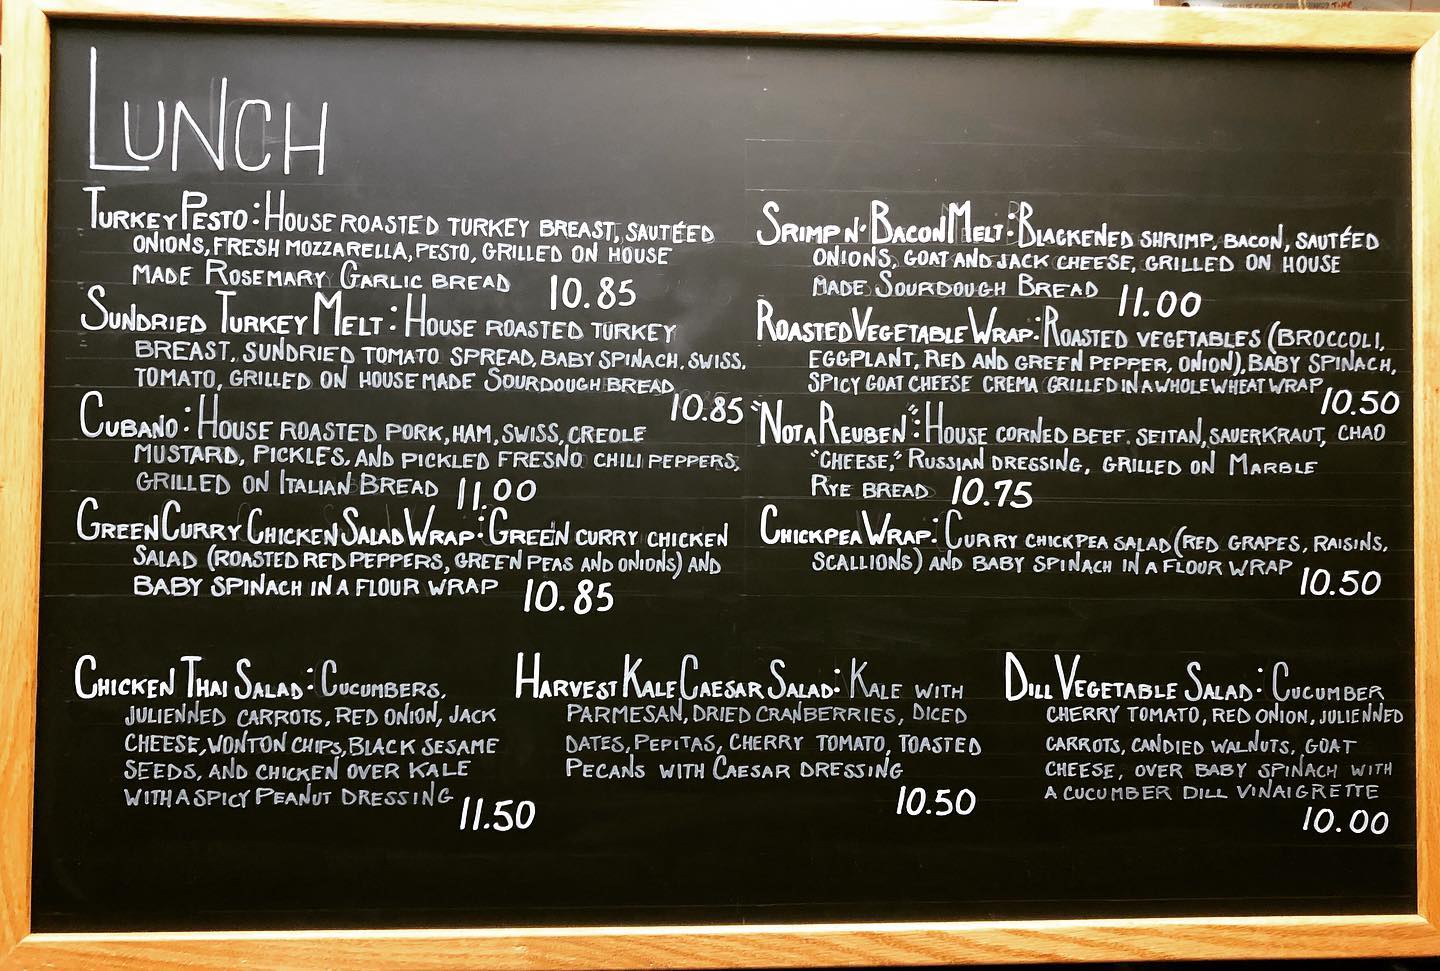 LUNCH
TURKEY PESTO: HOUSE ROASTED TURKEY BREAST, SAUTÉED
ONIONS, FRESH MOZZARELLA, PESTO, GRILLED ON HOUSE
MADE ROSEMARY GARLIC BREAD 10.85
SUNDRIED TURKEY MELT: HOUSE ROASTED TURKEY
BREAST, SUNDRIED TOMATO SPREAD, BABY SPINACH, SWISS,
TOMATO, GRILLED ON HOUSEMADE SOURDOUGH BREAD
10.85
CUBANO: HOUSE ROASTED PORK, HAM, SWISS, CREOLE
MUSTARD, PICKLES, AND PICKLED FRESNO CHILI PEPPERS,
GRILLED ON ITALIAN BREAD 11.00
GREEN CURRY CHICKEN SALAD WRAP: GREEN CURRY CHICKEN
SALAD (ROASTED RED PEPPERS, GREEN PEAS AND ONIONS) AND
BABY SPINACH IN A FLOUR WRAP 10.85
SRIMP N' BACON MELT: BLACKENED SHRIMP, BACON, SAUTÉED
ONIONS, GOAT AND JACK CHEESE, GRILLED ON HOUSE
MADE SOURDOUGH BREAD 11.00
ROASTED VEGETABLE WRAP: ROASTED VEGETABLES (BROCCOLI,
EGGPLANT, RED AND GREEN PEPPER, ONION), BABY SPINACH,
SPICY GOAT CHEESE CREMA GRILLED IN A WHOLE WHEAT WRAP
10.50
"NOT A REUBEN": HOUSE CORNED BEEF. SEITAN, SAUERKRAUT, CHAO
"CHEESE," RUSSIAN DRESSING, GRILLED ON MARBLE
RYE BREAD 10.75
CHICKPEA WRAP: CURRY CHICKPEA SALAD (RED GRAPES, RAISINS,
SCALLIONS) AND BABY SPINACH IN A FLOUR WRAP 10.50
CHICKEN THAI SALAD: CUCUMBERS,
JULIENNED CARROTS, RED ONION, JACK
CHEESE, WONTON CHIPS, BLACK SESAME
SEEDS, AND CHICKEN OVER KALE
WITH A SPICY PEANUT DRESSING 11.50
HARVEST KALE CAESAR SALAD: KALE WITH
PARMESAN, DRIED CRANBERRIES, DICED
DATES, PEPITAS, CHERRY TOMATO, TOASTED
PECANS WITH CAESAR DRESSING
10.50
DILL VEGETABLE SALAD: CUCUMBER
CHERRY TOMATO, RED ONION, JULIENNED
CARROTS, CANDIED WALNUTS, GOAT
CHEESE, OVER BABY SPINACH WITH
A CUCUMBER DILL VINAIGRETTE
10.00